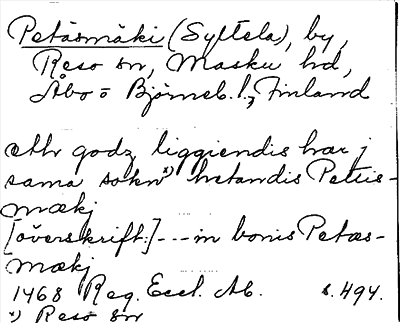 Petäsmäki (Syltela), by,
Reso sn, Masku hd,
Åbo o Björneb. l., Finland
ath godz liggiendis har j
sama sokn x) hetandis Petis-
mækj
[överskrift:] --- in bonis Petæs-
mækj
1468 Reg. Eccl. Ab. s. 494.
x) Reso sn